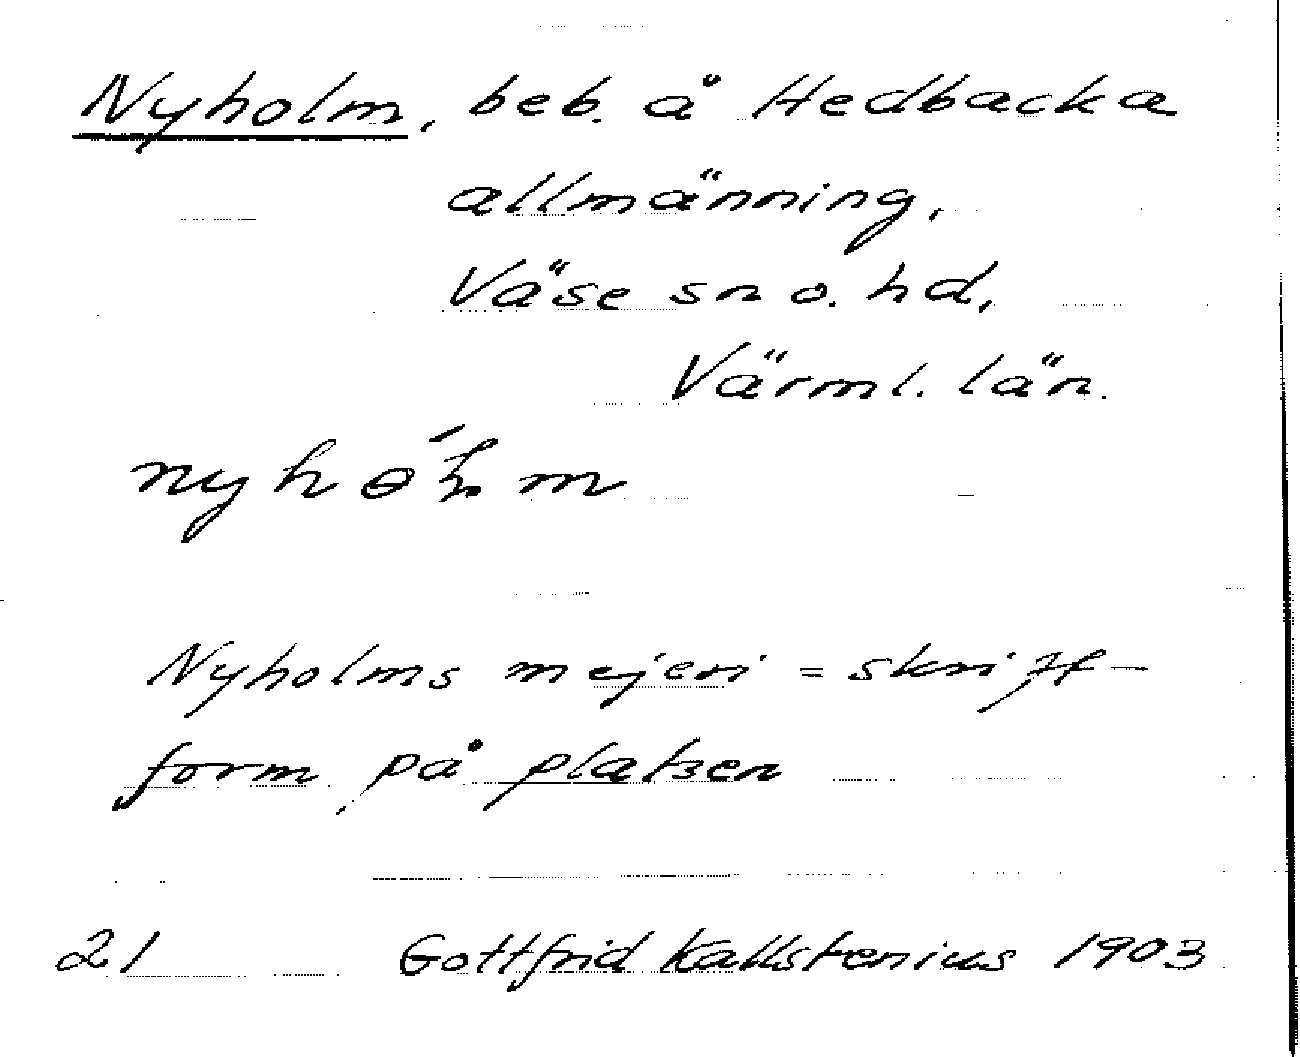 Nyholm, beb. å Hedbacka
allmänning,
Väse sn o. hd,
Värml. län.
Nyholms mejeri = skrift-
form på platsen
21 Gottfrid Kallstenius 1903